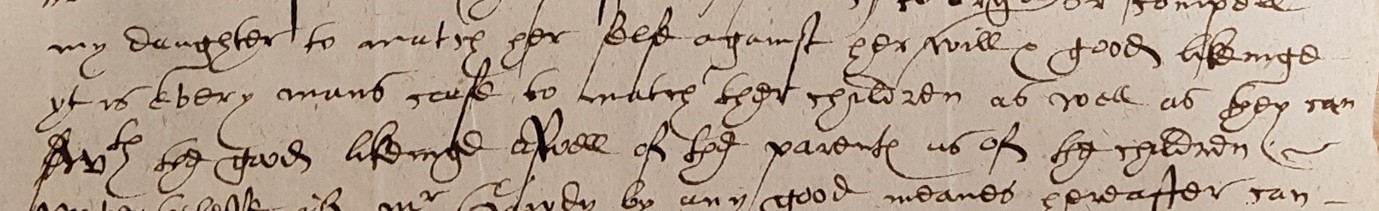 or compell
my daughter to match her selfe against her will & good likeinge
yt is every mans case to match ther children as well as they can
wth the good likeinge aswell of the parents as of the children
if Mr by any good meanes hereafter can